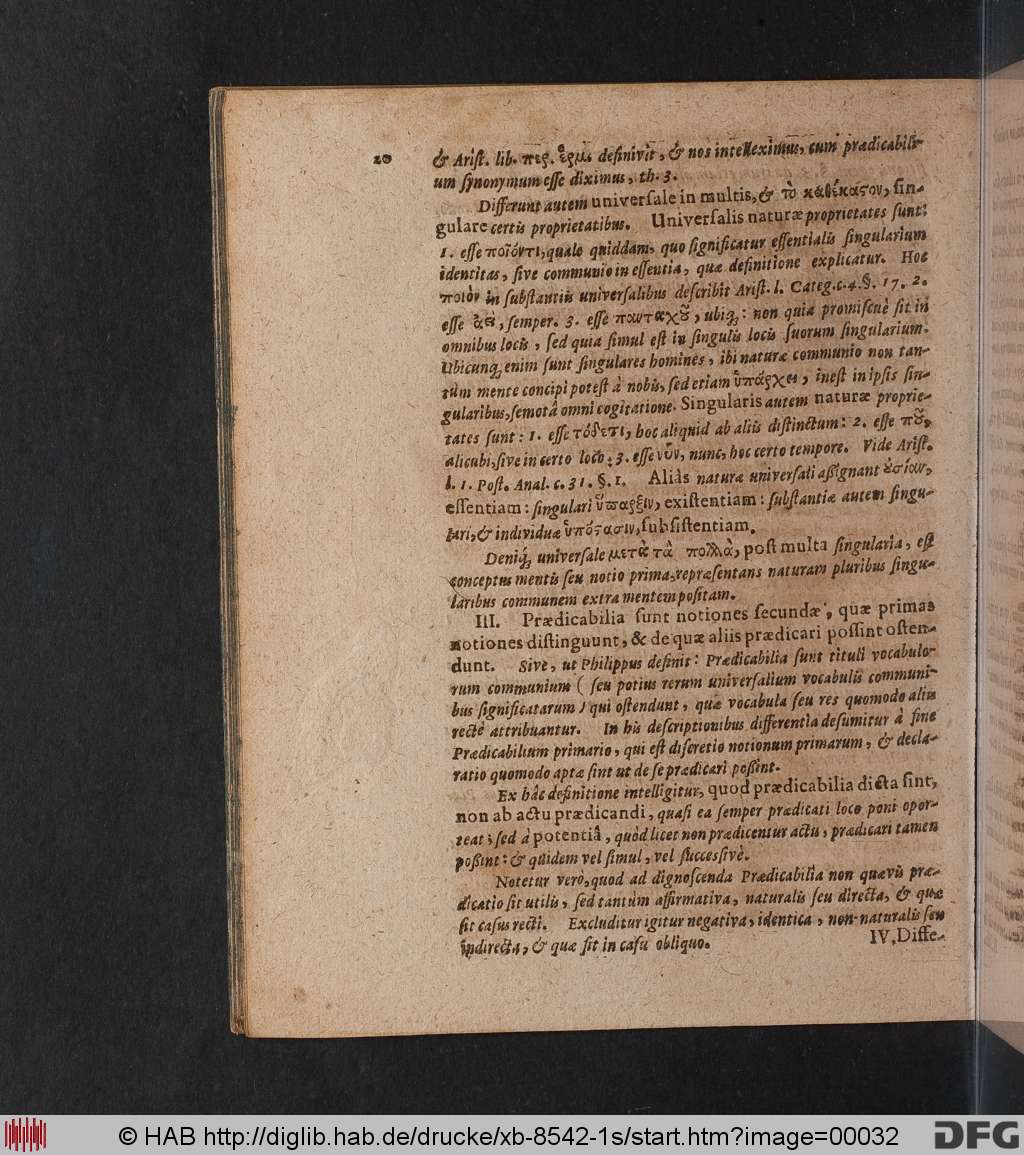 20
& Arist. lib. περ. ἑρμ. definivit, & nos intelleximus, cum prædicabili-
um synonymum esse diximus, th. 3.
Differunt autem universale in multis, & τὸ καθέκαστον, sin-
gulare certis proprietatibus. Universalis naturæ proprietates sunt:
1. esse ποῖόν τι, quale quiddam, quo significatur essentialis singularium
identitas, sive communio in essentia, quæ definitione explicatur. Hoc
ποιὸν in substantiis universalibus describit Arist. l. Categ. c. 4. §. 17. 2.
esse ἀεὶ, semper. 3. esse πανταχοῦ, ubiq;: non quia promiscuè sit in
omnibus locis, sed quia simul est in singulis locis suorum singularium.
Ubicunq; enim sunt singulares homines, ibi naturæ communio non tan-
tùm mente concipi potest à nobis, sed etiam ὑπάρχει, inest in ipsis sin-
gularibus, semotâ omni cogitatione. Singularis autem naturæ proprie-
tates sunt: 1. esse τόδε τι, hoc aliquid ab aliis distinctum: 2. esse ποῦ,
alicubi, sive in certo loco: 3. esse νῦν, nunc, hoc certo tempore. Vide Arist.
l. 1. Post. Anal. c. 31. §. 1. Aliàs naturæ universali assignant ὀσίαν,
essentiam: singulari ὕπαρξιν, existentiam: substantiæ autem singu-
lari, & individuæ ὑπόστασιν, subsistentiam.
Deniq; universale μετὰ τὰ πολλὰ, post multa singularia, est
conceptus mentis seu notio prima, repræsentans naturam pluribus singu-
laribus communem extra mentem positam.
III. Prædicabilia sunt notiones secundæ, quæ primas
notiones distinguunt, & de quæ aliis prædicari possint osten-
dunt. Sive, ut Philippus definit: Prædicabilia sunt tituli vocabulo-
rum communium (seu potius rerum universalium vocabulis communi-
bus significatarum) qui ostendunt, quæ vocabula seu res quomodo aliis
rectè attribuantur. In his descriptionibus differentia desumitur à fine
Prædicabilium primario, qui est discretio notionum primarum, & decla-
ratio quomodo aptæ sint ut de se prædicari possint.
Ex hâc definitione intelligitur, quod prædicabilia dicta sint,
non ab actu prædicandi, quasi ea semper prædicati loco poni opor-
teat; sed à potentiâ, quòd licet non prædicentur actu, prædicari tamen
possint: & quidem vel simul, vel successivè.
Notetur verò, quod ad dignoscenda Prædicabilia non quævis præ-
dicatio sit utilis, sed tantùm affirmativa, naturalis seu directa, & quæ
fit casus recti. Excluditur igitur negativa, identica, non-naturalis seu
indirecta, & quæ fit in casu obliquo.
IV, Diffe-
© HAB http://diglib.hab.de/drucke/xb-8542-1s/start.htm?image=00032
DFG